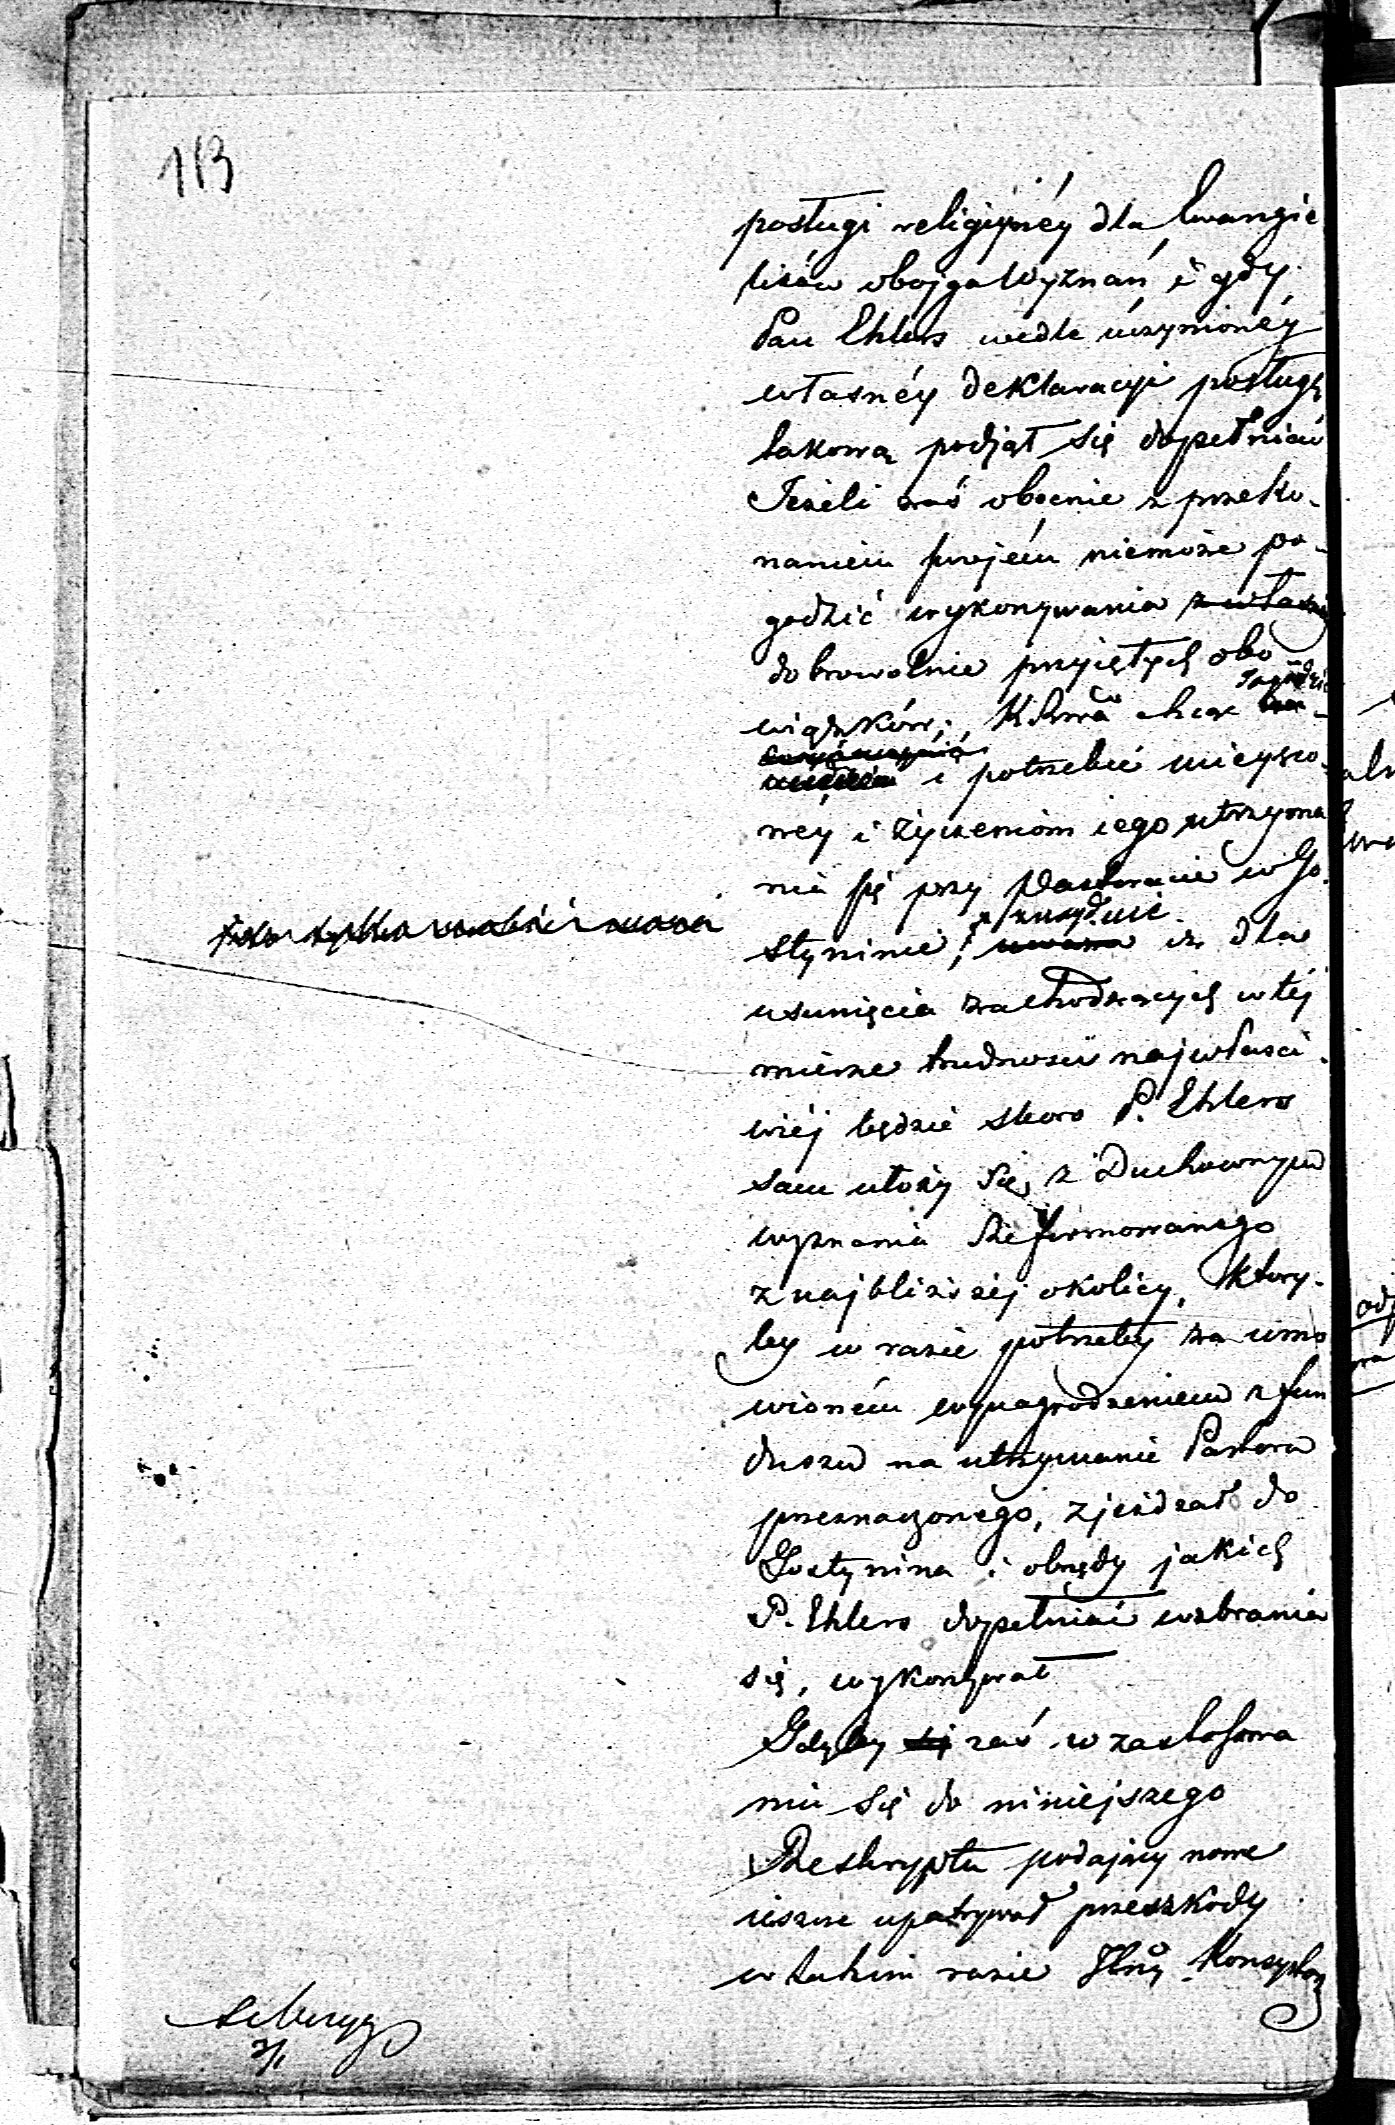 113
posługi religijnéy dla Ewangie
lików obojga Wyznań, i gdy
Pan Ehlers wedle uczynionéy
własnéy deklaracyi posługę
takową podjął się dopełniać
Jeżeli zaś obecnie z przeko-
naniem swojém niemoże po-
godzić wykonywania
dobrowolnie przyiętych obo
wiązków;
i potrzebie mieysco-
wey i życzeniom iego utrzyma
nia się przy Pastoracie w Go-
znajduie
styninie, iż dla
usunięcia zachodzących w téj
mierze trudności najwłaści-
wiéj będzie skoro P. Ehlers
sam ułoży się z Duchownym
wyznania Reformowanego
z najbliższéj okolicy, który-
by w razie potrzeby za umó
wioném wynagrodzeniem z fun
duszu na utrzymanie Pastora
przeznaczonego, zjeżdzał do
Gostynina i obrzędy jakich
P. Ehlers dopełniać wzbrania
się, wykonywał
Gdyby zaś w zastosowa
niu się do niniejszego
Reskryptu podający nowe
ieszcze upatrywał przeszkody
w takim razie Konsystorz